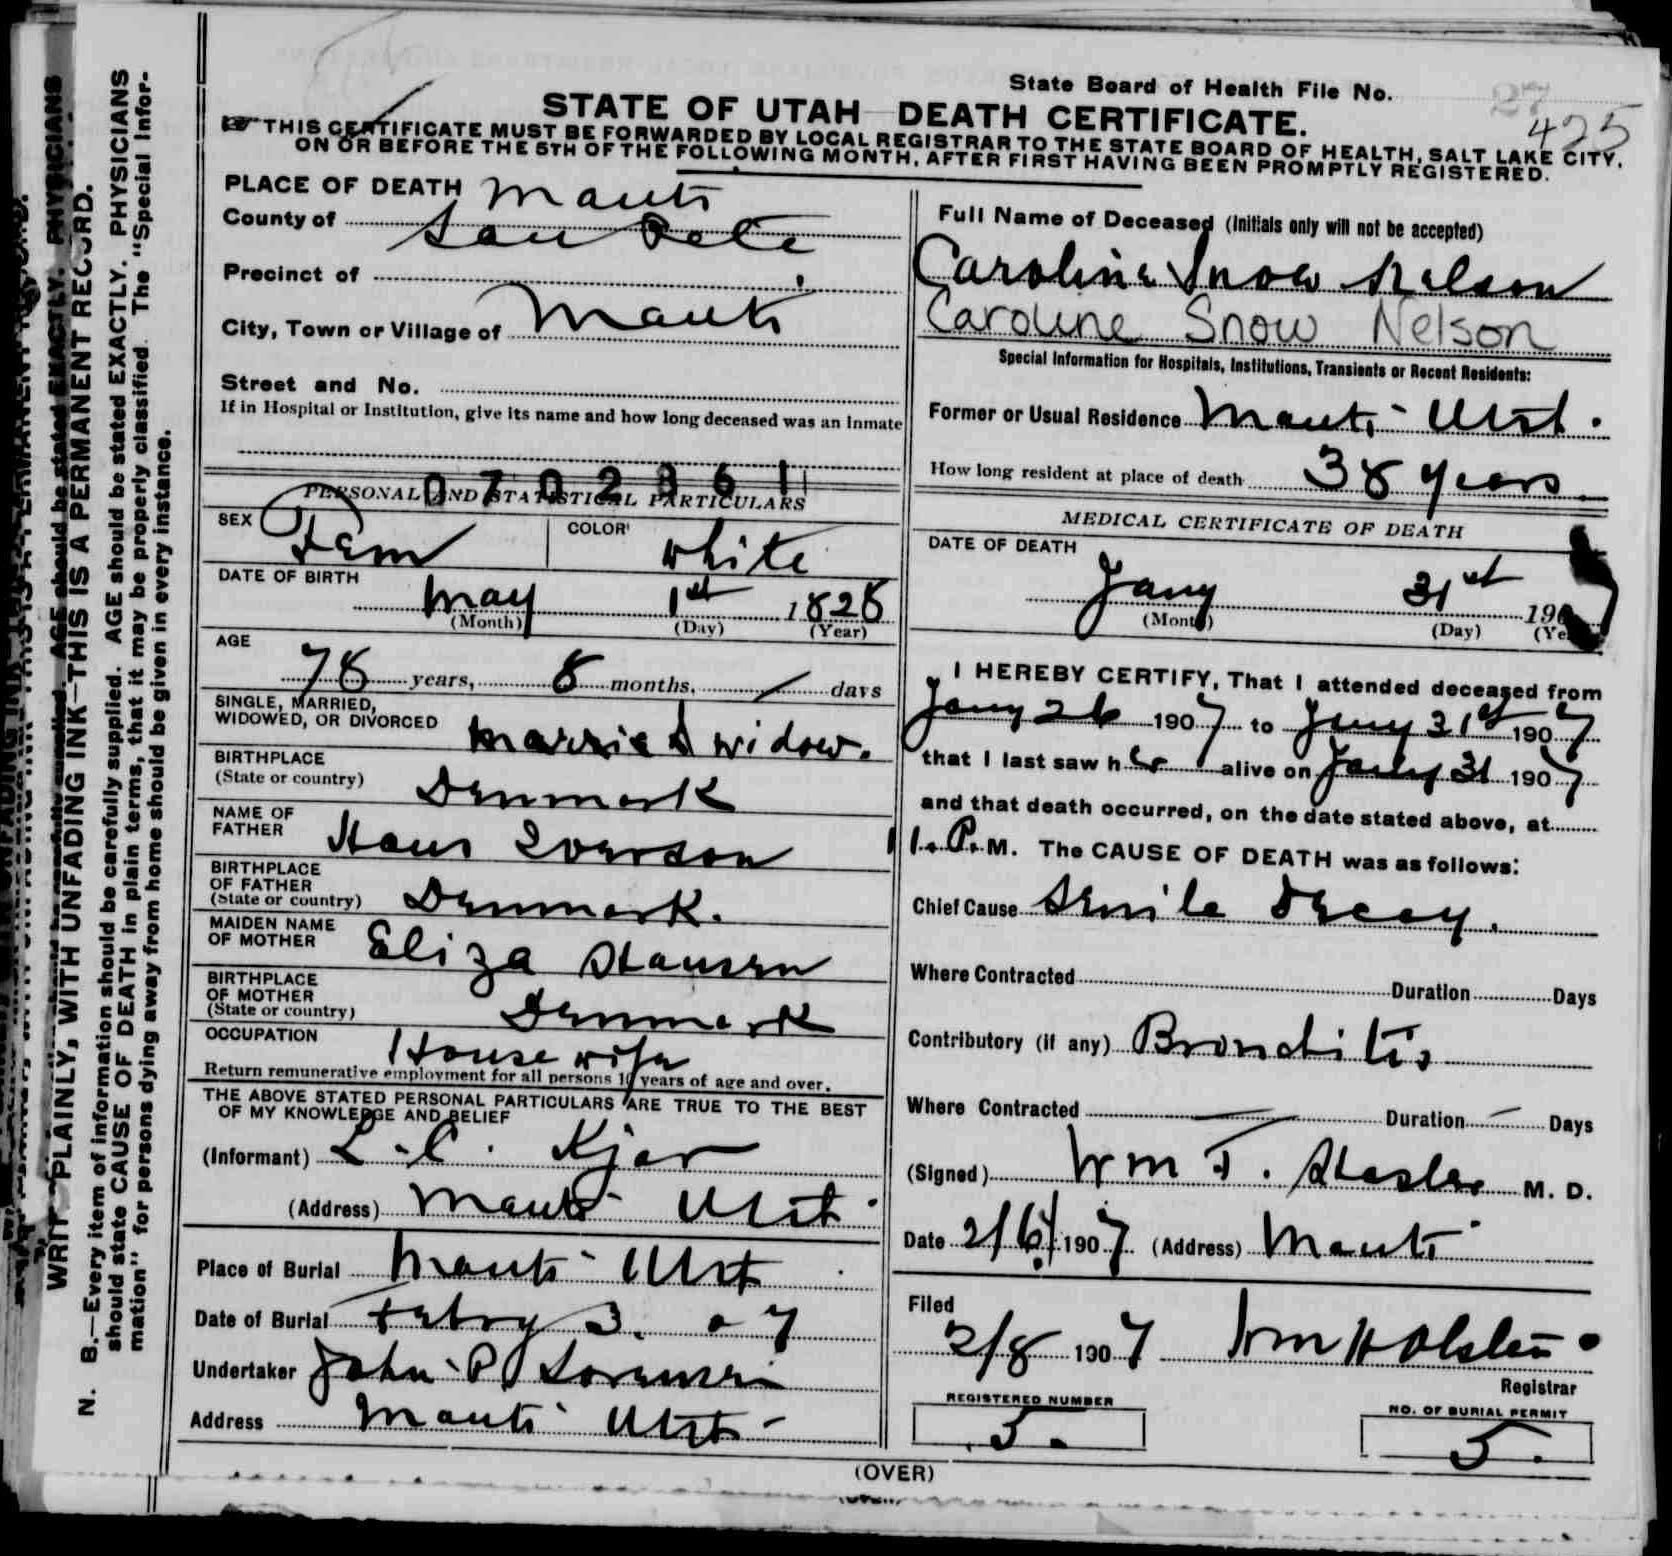 State Board of Health File No.
27
425
STATE OF UTAH DEATH CERTIFICATE.
THIS CERTIFICATE MUST BE FORWARDED BY LOCAL REGISTRAR TO THE STATE BOARD OF HEALTH, SALT LAKE CITY,
ON OR BEFORE THE 5TH OF THE FOLLOWING MONTH, AFTER FIRST HAVING BEEN PROMPTLY REGISTERED.
PLACE OF DEATH Manti
County of San Pete
Precinct of
City, Town or Village of Manti
Street and No.
If in Hospital or Institution, give its name and how long deceased was an Inmate
070 2361
PERSONAL AND STATISTICAL PARTICULARS
SEX Fem COLOR white
DATE OF BIRTH
May 1st 1828
(Month) (Day) (Year)
AGE
78 years, 8 months, / days
SINGLE, MARRIED,
WIDOWED, OR DIVORCED married widow.
BIRTHPLACE
(State or country) Denmark
NAME OF
FATHER Hans Iverson
BIRTHPLACE
OF FATHER
(State or country) Denmark.
MAIDEN NAME
OF MOTHER Eliza Hansen
BIRTHPLACE
OF MOTHER
(State or country) Denmark
OCCUPATION Housewife
Return remunerative employment for all persons 10 years of age and over.
THE ABOVE STATED PERSONAL PARTICULARS ARE TRUE TO THE BEST
OF MY KNOWLEDGE AND BELIEF
(Informant) L. C. Kjar
(Address) Manti Utah
Place of Burial Manti Utah
Date of Burial Febry 3. 07
Undertaker John P Sorensen
Address Manti Utah
Full Name of Deceased (Initials only will not be accepted)
Caroline Snow Nelson
Caroline Snow Nelson
Special Information for Hospitals, Institutions, Transients or Recent Residents:
Former or Usual Residence Manti Utah.
How long resident at place of death 38 years
MEDICAL CERTIFICATE OF DEATH
DATE OF DEATH
Jany 31st 190
(Month) (Day) (Ye
I HEREBY CERTIFY, That I attended deceased from
Jany 26 1907 to Jany 31st 1907
that I last saw her alive on Jany 31 1907
and that death occurred, on the date stated above, at
1. P. M. The CAUSE OF DEATH was as follows:
Chief Cause Senile Decay.
Where Contracted Duration Days
Contributory (if any) Bronchitis
Where Contracted Duration Days
(Signed) Wm T. M. D.
Date 2/6/1907 (Address) Manti
Filed
2/8 1907 Wm H Olsten
Registrar
REGISTERED NUMBER
5.
NO. OF BURIAL PERMIT
5.
(OVER)
WRITE PLAINLY, WITH UNFADING INK—THIS IS A PERMANENT RECORD.
N. B.—Every item of information should be carefully supplied. AGE should be stated EXACTLY. PHYSICIANS
should state CAUSE OF DEATH in plain terms, that it may be properly classified. The "Special Infor-
mation" for persons dying away from home should be given in every instance.